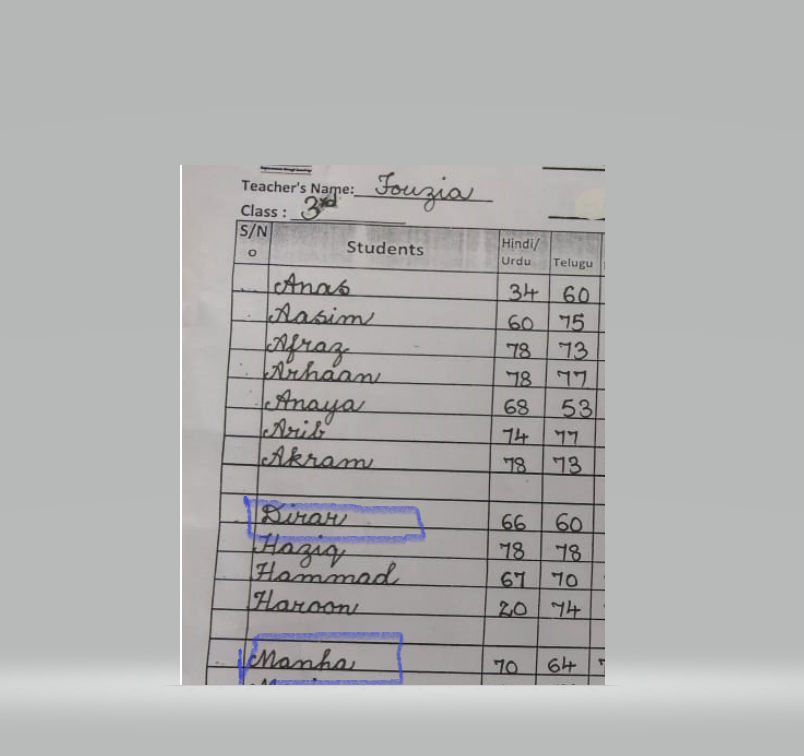 Teacher's Name: Fouzia
Class : 3rd
S/No Students Hindi/Urdu Telugu
Anas 34 60
Aasim 60 75
Afraz 78 73
Arhaan 78 77
Anaya 68 53
Arib 74 77
Akram 78 73
Dirar 66 60
Haziq 78 78
Hammad 67 70
Haroon 20 74
Manha 70 64